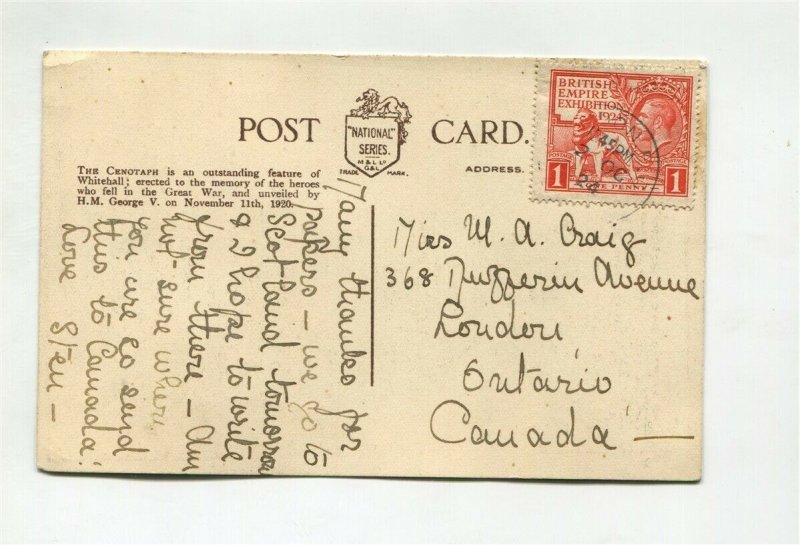 POST CARD.
"NATIONAL"
SERIES.
M & L Lᵈ
G & L
TRADE MARK.
ADDRESS.
THE CENOTAPH is an outstanding feature of
Whitehall; erected to the memory of the heroes
who fell in the Great War, and unveiled by
H.M. George V. on November 11th, 1920.
Many thanks for
papers – we go to
Scotland tomorrow
& I hope to write
from there – Am
not sure where
you are so send
this to Canada!
Love
BRITISH
EMPIRE
EXHIBITION
1924
POSTAGE
1
PENNY
1
45PM
OC
24
Miss M. A. Craig
368 Dufferin Avenue
London,
Ontario
Canada –